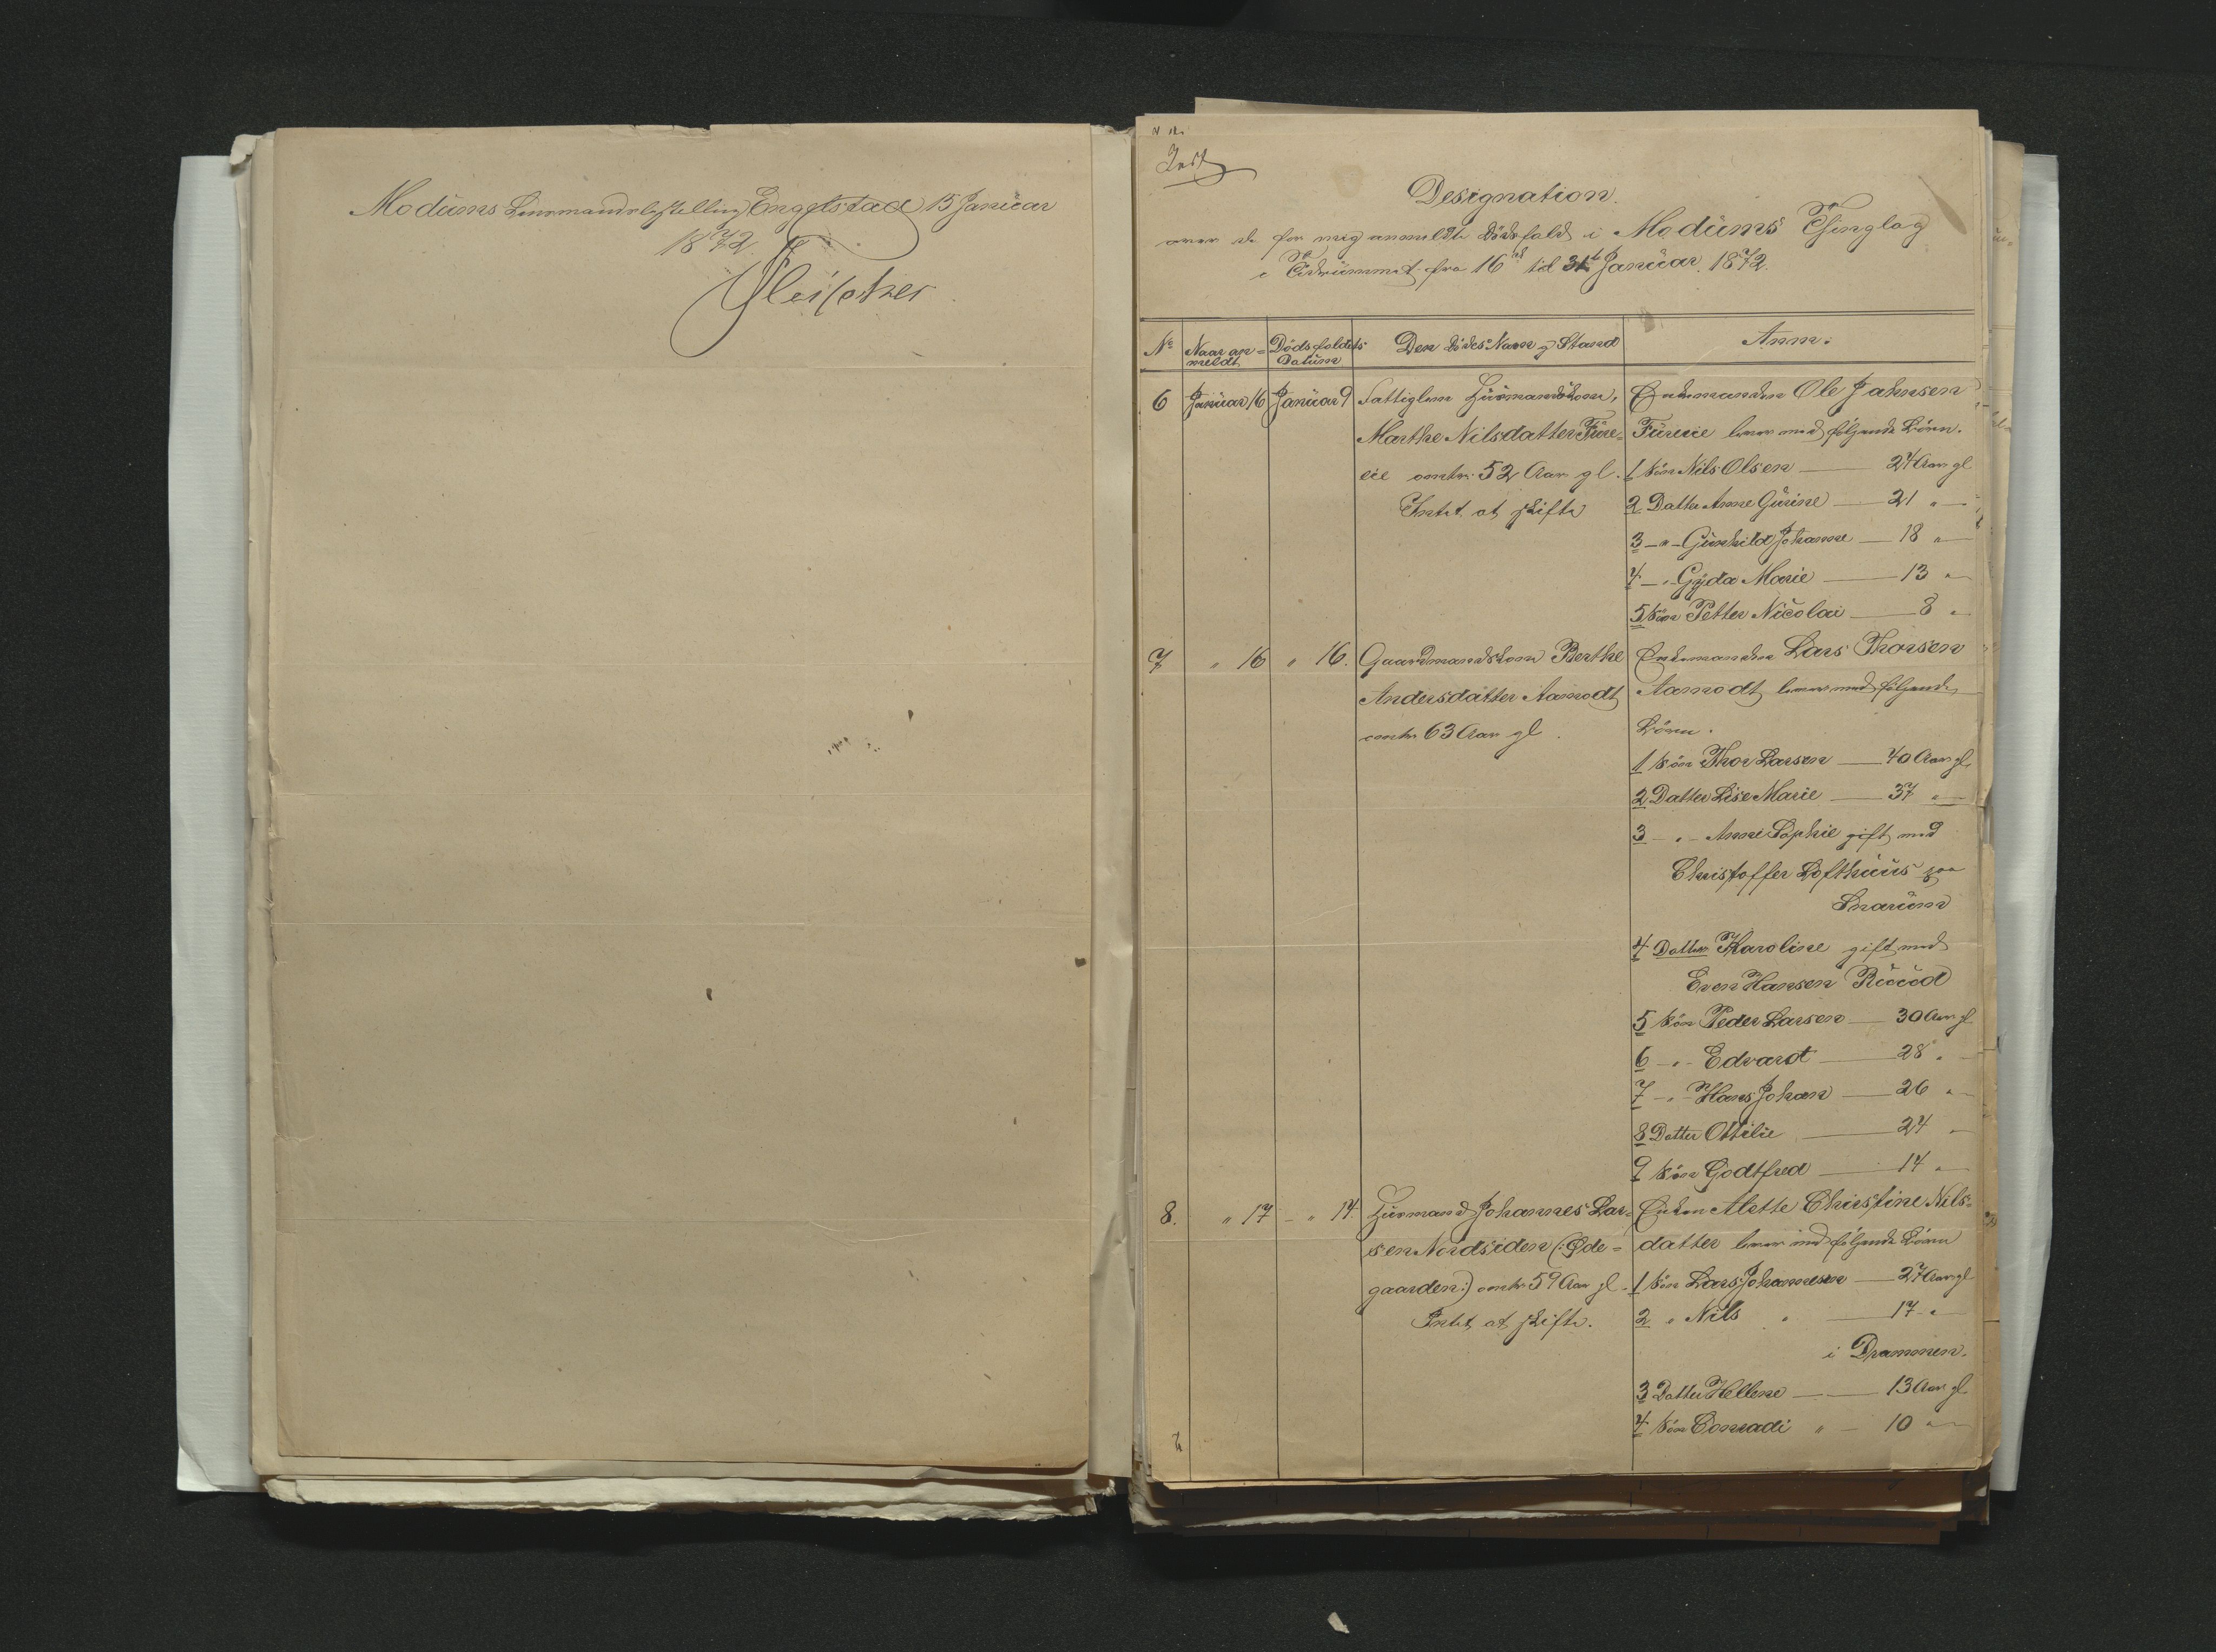 Modums Lensmandsbestilling Engelstad 15 Januar
1872.
Fleischer
Designation
over de for mig anmeldte Dödsfald i Modums Thinglag
i Tidsrummet fra 16de til 31te Januar 1872.
No Naar an= meldt Dödsfaldets Datum Den dödes Navn og Stand Anm:
6 Januar 16 Januar 9 Fattiglem Huusmandskone, Enkemanden Ole Jahnsen
Marthe Nilsdatter Fure= Fureeie lever med følgende Börn.
eie omtr. 52 Aar gl. 1 Sön Nils Olsen — 24 Aar gl
Intet at skifte 2 Datter Anne Gurine — 21 "
3 — " — Gunhild Johanne — 18 "
4 — " Gyda Marie — 13 "
5 Sön Petter Nicolai — 8 "
7 " 16 " 16. Gaardmandskone Berthe Enkemanden Lars Thorsen
Andersdatter Aamodt Aamodt lever med følgende
omtr 63 Aar gl. Börn.
1 Sön Thor Larsen — 40 Aar gl.
2 Datter Lise Marie — 37 "
3 — " — Anne Sophie gift med
Christoffer Lofthuus paa
Snarum
4 Datter Karoline gift med
Even Hansen Ruud
5 Sön Peder Larsen — 30 Aar gl
6 — " — Edvardt — 28 "
7 — " — Hans Johan — 26 "
8 Datter Ottilie — 24 "
9 Sön Godtfred — 14 "
8. " 17 — " 14. Huusmand Johannes Lar= Enken Mette Christine Nils=
sen Nordsiden (: Øde= datter lever med følgende Börn
gaarden:) omtr 59 Aar gl. 1 Sön Lars Johannesen — 27 Aar gl
Intet at skifte. 2 " Nils " — 17 "
i Drammen.
3 Datter Hellene — 13 Aar gl
4 Sön Conradi " — 10 "